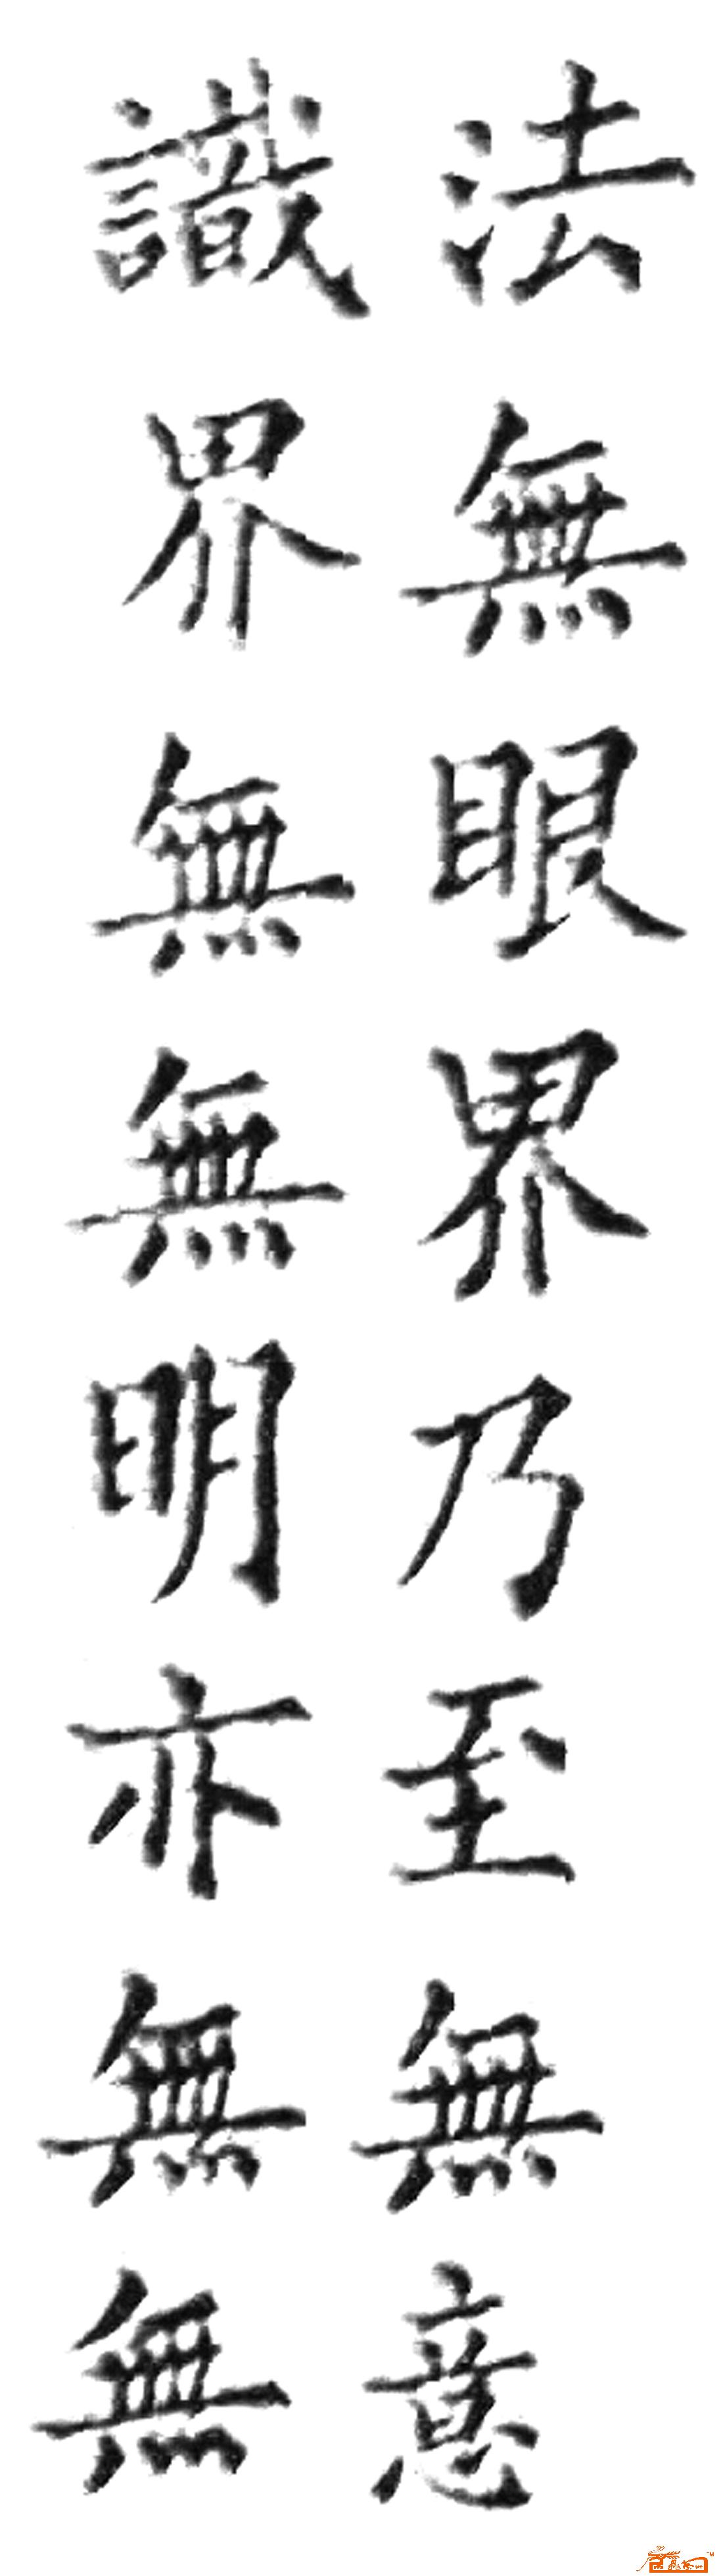 法無眼界乃至無意
識界無無明亦無無